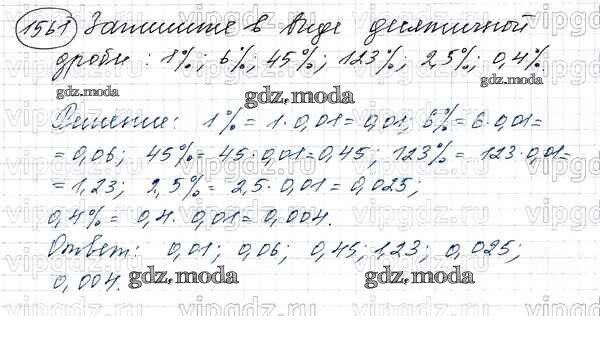 1561 Запишите в виде десятичной
дроби: 1%; 6%; 45%; 123%; 2,5%; 0,4%
gdz.moda gdz.moda
gdz.moda
Решение: 1% = 1·0,01 = 0,01; 6% = 6·0,01 =
= 0,06; 45% = 45·0,01 = 0,45; 123% = 123·0,01 =
= 1,23; 2,5% = 2,5·0,01 = 0,025;
0,4% = 0,4·0,01 = 0,004.
Ответ: 0,01; 0,06; 0,45; 1,23; 0,025;
0,004. gdz.moda gdz.moda